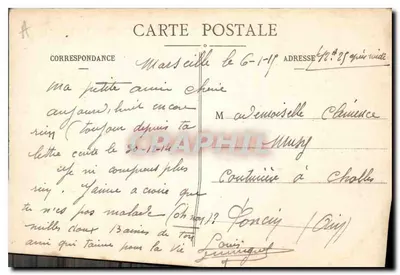 CARTE POSTALE
CORRESPONDANCE
ADRESSE
Marseille le 6-1-15
Ma petite amie cherie
aujourd'huit encore
rien (toujour depuis ta
lettre ecrite le 30-12-14
je ni comprend plus
rien. J'aime a croire que
tu n'es pas malade
mille doux Baisers de ton
ami qui t'aime pour la vie
Louis
Mademoiselle Clémence
Couturière à Cholles
Poncin (Ain)
CPAPHIL.FR